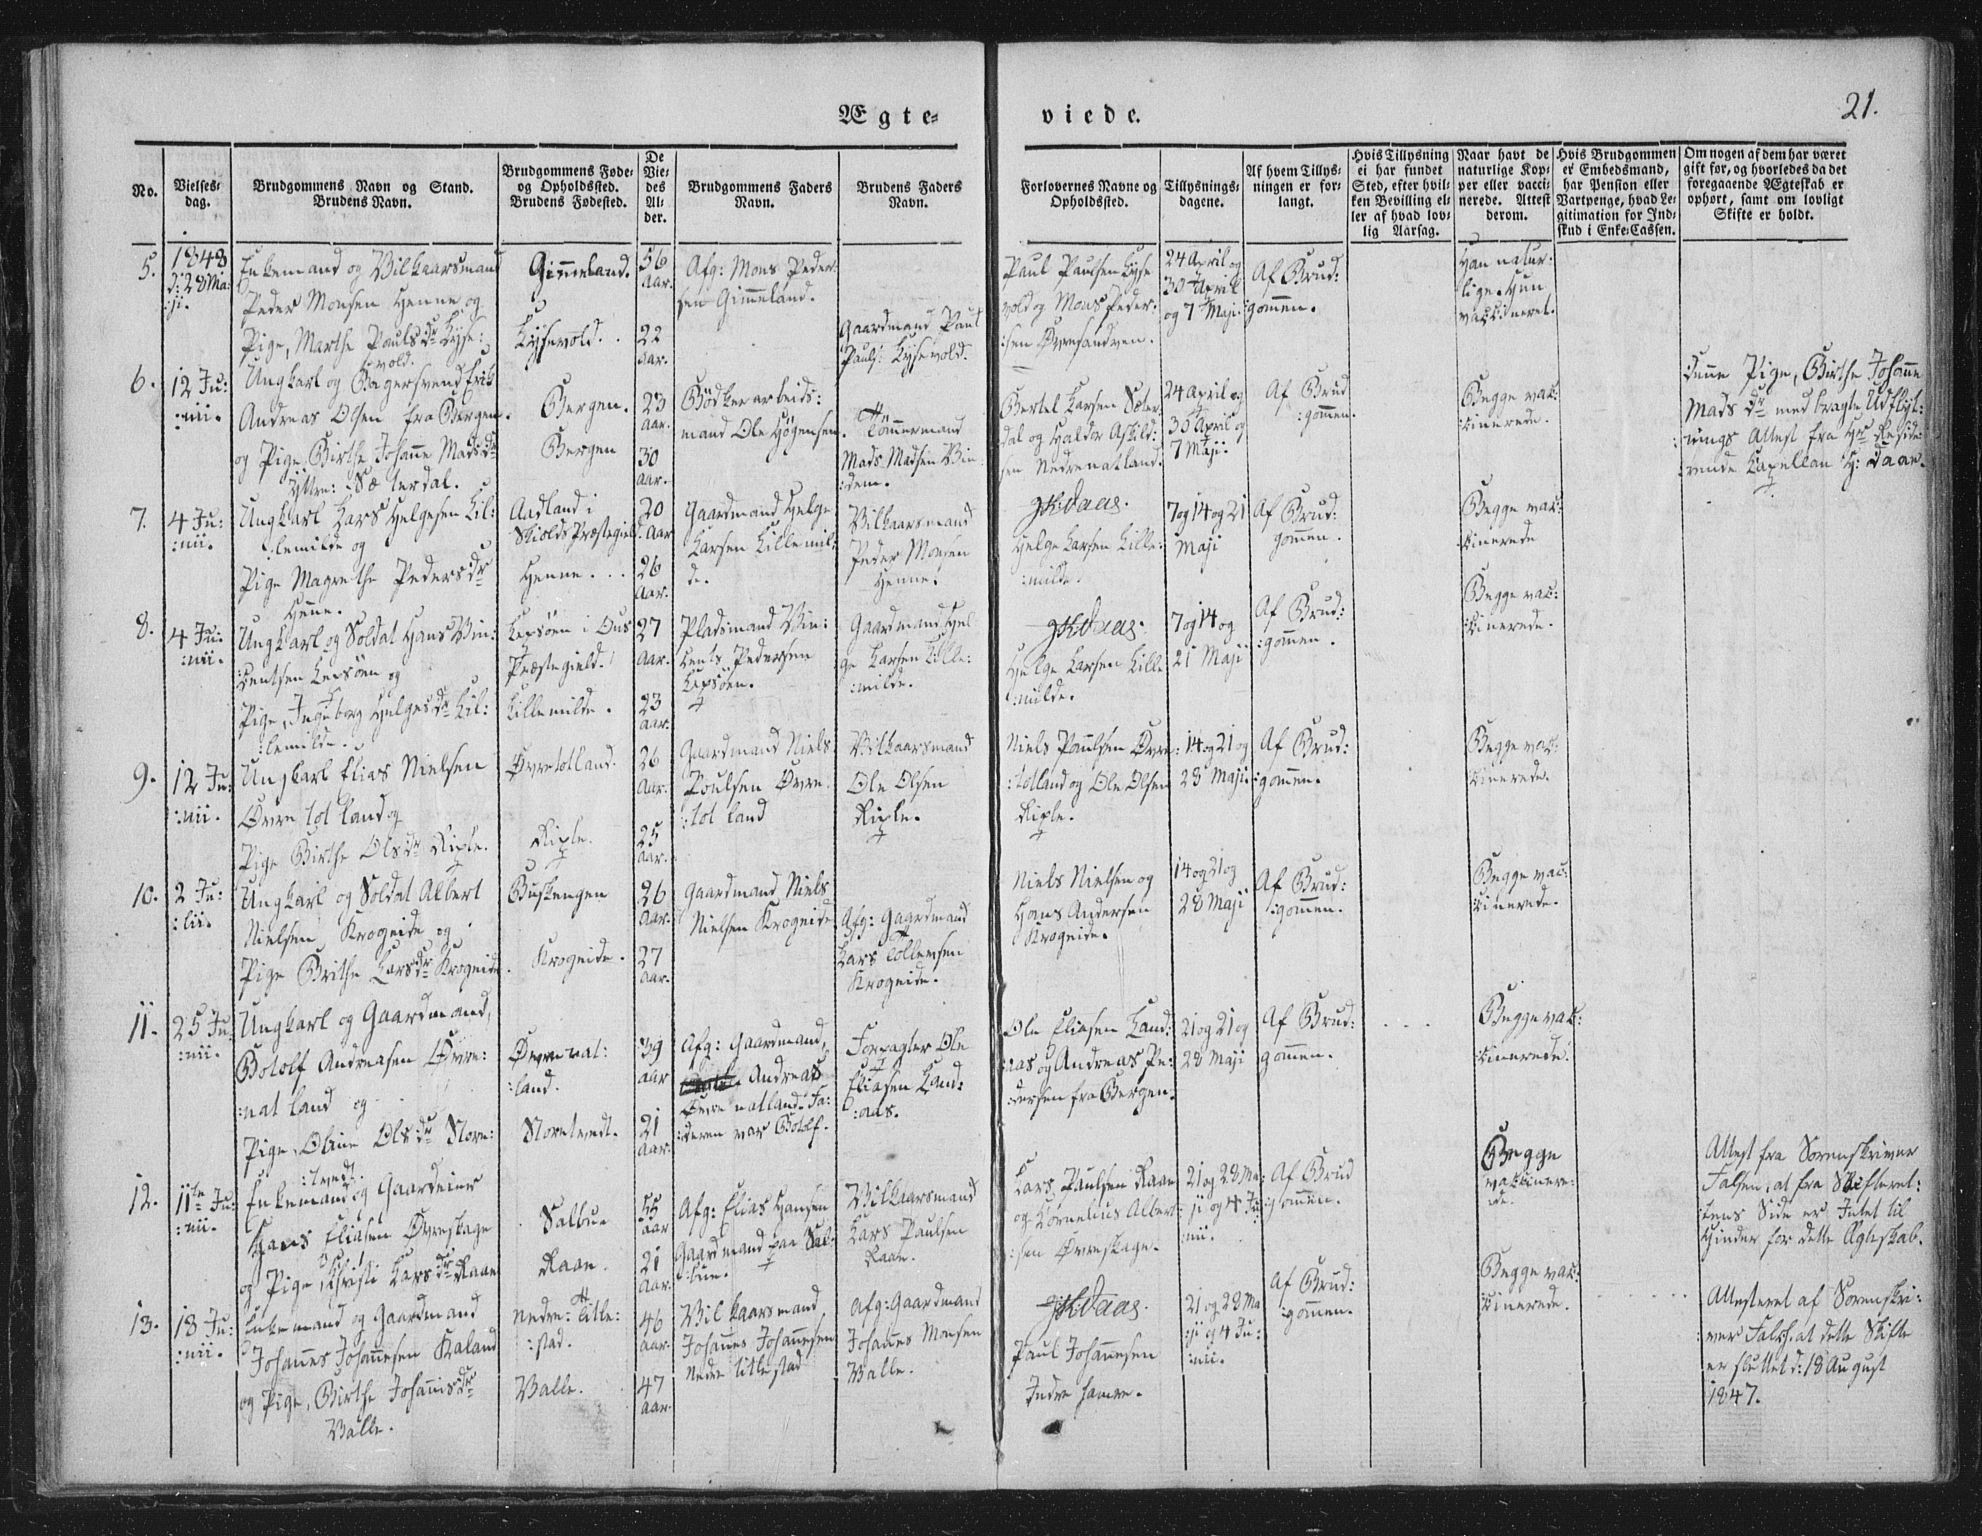 Ægte-
viede.
21.
No.
Vielses-
dag.
Brudgommens Navn og Stand.
Brudens Navn.
Brudgommens Føde-
og Opholdssted.
Brudens Fødested.
De
Vie-
des
Al-
der.
Brudgommens Faders
Navn.
Brudens Faders
Navn.
Forlovernes Navne og
Opholdssted.
Tillysnings-
dagene.
Af hvem Tillys-
ningen er for-
langt.
Hvis Tillysning
ei har fundet
Sted, efter hvil-
ken Bevilling el-
ler af hvad lov-
lig Aarsag.
Naar havt de
naturlige Kop-
per eller vacci-
nerede. Attest
derom.
Hvis Brudgommen
er Embedsmand,
har Pension eller
Vartpenge, hvad Le-
gitimation for Ind-
skud i Enke-Cassen.
Om nogen af dem har været
gift før, og hvorledes da det
foregaaende Ægteskab er
ophørt, samt om lovligt
Skifte er holdt.
5.
1848
d: 28 Ma:
:ji.
Enkemand og Vilkaarsmand
Peder Monsen Henne og
Pige, Marthe Pouls dr Lyse:
vold.
Gimmeland.
Lysevold.
56
Aar.
22
Aar.
Afg: Mons Peder:
sen Gimmeland.
Gaardmand Paul
Pauls: Lysevold.
Paul Paulsen Lyse
vold og Mons Peder:
:sen Øvresandven.
24 April og
30 April
og 7 Maji.
Af Brud:
gommen.
Han natur:
lige. Hun
vakcineret.
6.
12 Ju:
:nii.
Ungkarl og Bagersvend Erik
Andreas Olsen fra Bergen.
og Pige Birthe Johanne Mads dr
Ytre: Sæterdal.
Bergen.
Bergen
23
Aar.
30
Aar.
Bödkerarbeids:
mand Ole Högensen.
Tömmermand
Mads Madsen Vin
:dem.
Bertel Larsen Sæter
dal og Haldor Askild:
sen Nedrenatland.
24 April og
30 April og
7 Maji.
Af Brud
:gommen.
Begge vak:
:cinerede.
Denne Pige, Birthe Johanne
Mads dr medbragte Udflyt:
:nings Attest fra Hr Reside:
rende Capellan H: Daae.
7.
4 Ju:
:nii.
Ungkarl Lars Helgesen Lil:
:lemilde og
Pige Magrethe Peders dr
Henne.
Aadland i
Skiolds Præstegield.
Henne.
20
Aar
26
Aar.
Gaardmand Helge
Larsen Lillemil:
de.
Vilkaarsmand
Peder Monsen
Henne.
JKDaae.
Helge Larsen Lille:
:milde.
7 og 14 og 21
Maji
Af Brud:
gommen.
Begge vak:
:cinerede
8.
4 Ju:
:nii.
Ungkarl og Soldat Hans Vin:
:centsen Lepsöen og
Pige, Ingeborg Helges dr Lil:
:lemilde.
Lepsöen i Ous
Præstegield.
Lillemilde.
27
Aar.
23
Aar.
Pladsmand Vin:
cents Pedersen
Lepsöen.
Gaardmand Hel
ge Larsen Lille:
:milde.
JKDaae.
Helge Larsen Lille
:milde.
7 og 14 og
21 Maji
Af Brud:
:gommen.
Begge vak:
:cinerede.
9.
12 Ju:
:nii.
Ungkarl Elias Nielsen
Øvretotland og
Pige Birthe Ols dr Riple.
Øvretotland.
Riple.
26
Aar.
25
Aar.
Gaardmand Niels
Poulsen Øvre
:totland
Vilkaarsmand
Ole Olsen
Riple.
Niels Poulsen Øvre
:totland og Ole Olsen
Riple.
14 og 21 og
28 Maji.
Af Brud:
:gommen.
Begge vak:
:cinerede.
10.
2 Ju:
:lii.
Ungkarl og Soldat Albert
Nielsen Krogeide og
Pige Brithe Lars dr Krogeide.
Buskengen
Krogeide.
26
Aar.
27
Aar.
Gaardmand Niels
Nielsen Krogeide
Afg: Gaardmand
Lars Tollevsen
Krogeide.
Niels Nielsen og
Hans Andersen
Krogeide.
14 og 21 og
28 Maji
Af Brud:
:gommen.
Begge vac:
:cinerede.
11.
25 Ju:
:nii.
Ungkarl og Gaardmand,
Botolf Andreasen Øvre:
:natland og
Pige, Oline Ols dr Store:
:tvedt.
Øvrenat:
:land.
Storetvedt.
39
Aar
21
Aar.
Afg: Gaardmand,
Andreas
Øvrenatland. Fa:
:deren var Botolf.
Forpagter Ole
Eliasen Land:
:aas.
Ole Eliasen Land:
:aas og Andreas Pe:
:dersen fra Bergen.
21 og 21 og
28 Maji
Af Brud:
gommen.
Begge vak:
:cinerede.
12.
11te Ju:
:nii.
Enkemand og Gaardeier
Hans Eliasen Øvreskage
og Pige, Khristi Lars dr Raae
Salbue
Raae.
55
Aar
21
Aar.
Afg: Elias Hansen
Gaardmand paa Sal:
:bue.
Vilkaarsmand
Lars Paulsen
Raae.
Lars Paulsen Raae
og Cornelius Albert:
:sen Øvreskage.
21 og 28 Ma:
ji og 4 Ju:
:nii.
Af Brud
:gommen.
Begge
vakcinere:
:de.
Attest fra Sorenskriver
Falsen, at fra Skifteret:
:tens Side er Intet til
Hinder for dette Ægteskab.
13.
18 Ju:
:nii.
Enkemand og Gaardmand
Johannes Johannesen Kaland
og Pige, Birthe Johannis dr
Valle.
Nedre: Title:
:stad.
Valle.
46
Aar.
47
Aar.
Vilkaarsmand,
Johannes Johannesen
Nedre titlestad
Afg: Gaardmand
Johannes Monsen
Valle.
JKDaae.
Paul Johannesen
Indre hamre.
21 og 28 Ma
:ji og 4 Ju:
:nii.
Af Brud:
:gommen.
Begge vak:
:cinerede.
Attesteret af Sorenskri:
:ver Falch. at dette Skifte
er sluttet d: 18 August
1847.